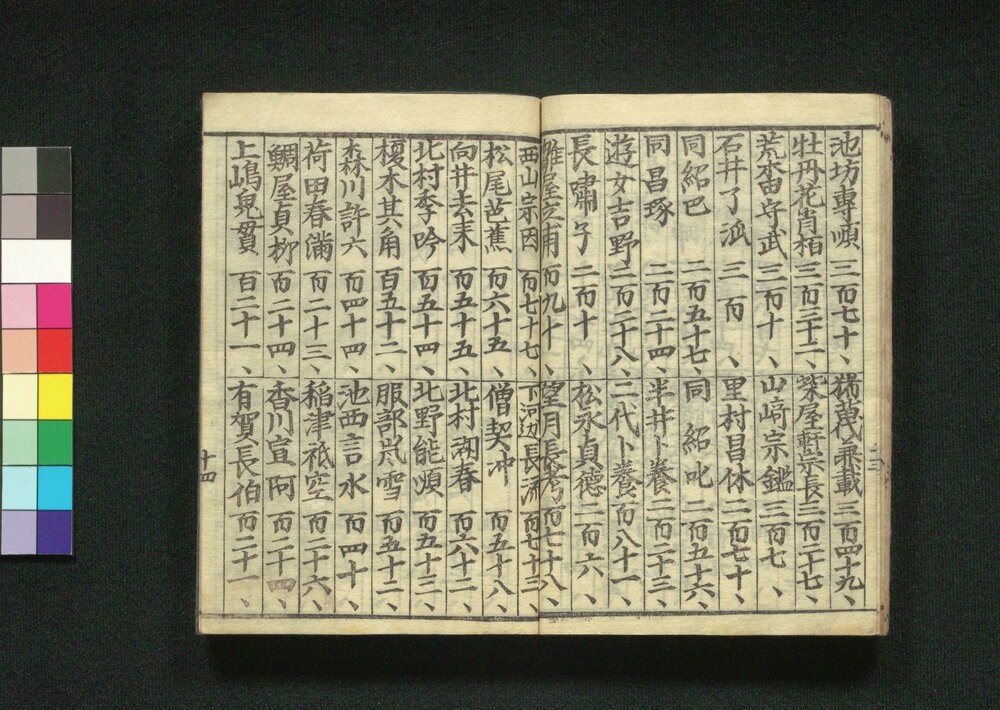 池坊專順 三百七十、
猪苗代兼載 三百四十九、
牡丹花肖柏 三百三十二、
柴屋軒宗長 三百二十七、
荒木田守武 三百十、
山﨑宗鑑 三百七、
石井了派 三百、
里村昌休 二百七十、
同紹巴 二百五十七、
同紹叱 二百五十六、
同昌琢 二百二十四、
半井卜養 二百二十三、
遊女吉野 二百二十八、
二代卜養 百八十一、
長嘯子 二百十、
松永貞德 二百六、
雛屋立甫 百九十、
望月長孝 百七十八、
西山宗因 百七十七、
下河辺長流 百七十三、
松尾芭蕉 百六十五、
僧契沖 百五十八、
向井去来 百五十五、
北村湖春 百六十二、
北村季吟 百五十四、
北野能順 百五十三、
榎木其角 百五十二、
服部嵐雪 百五十二、
森川許六 百四十四、
池西言水 百四十、
荷田春滿 百二十三、
稲津祇空 百二十六、
鯛屋貞柳 百二十四、
香川宣阿 百二十四、
上嶋鬼貫 百二十一、
有賀長伯 百二十一、
十四